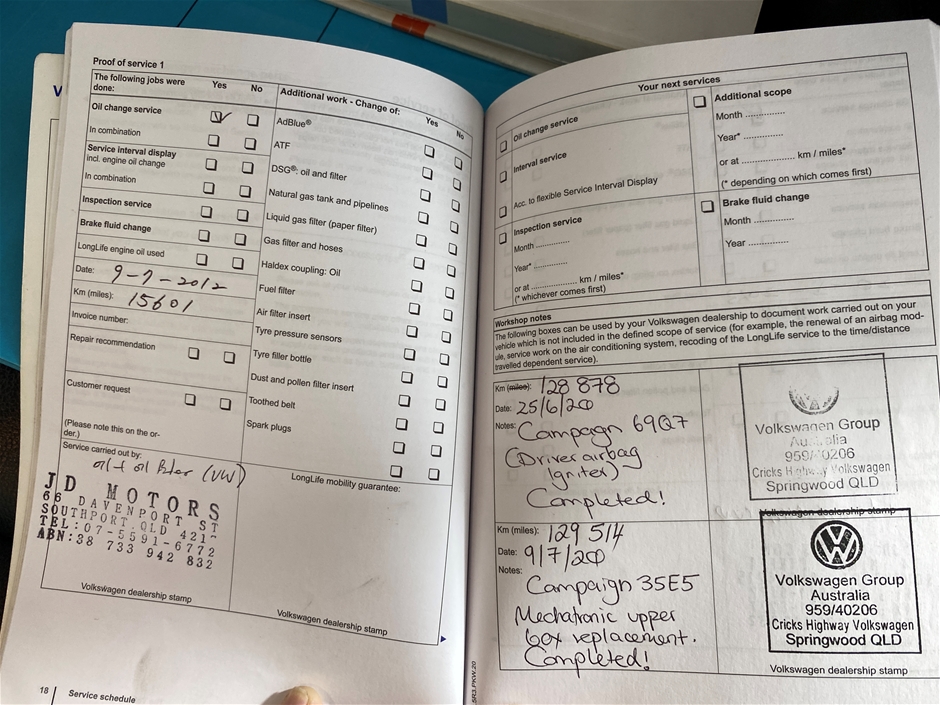 Proof of service 1
The following jobs were done:
Yes
No
Oil change service
In combination
Service interval display
incl. engine oil change
In combination
Inspection service
Brake fluid change
LongLife engine oil used
Date: 9-7-2012
Km (miles): 15601
Invoice number:
Repair recommendation
Customer request
(Please note this on the or-
der.)
Service carried out by:
oil + oil filter (VW)
JD MOTORS
66 DAVENPORT ST
SOUTHPORT QLD 421
TEL:07-5591-6772
ABN:38 733 942 832
Volkswagen dealership stamp
Additional work - Change of:
Yes
No
AdBlue®
ATF
DSG®: oil and filter
Natural gas tank and pipelines
Liquid gas filter (paper filter)
Gas filter and hoses
Haldex coupling: Oil
Fuel filter
Air filter insert
Tyre pressure sensors
Tyre filler bottle
Dust and pollen filter insert
Toothed belt
Spark plugs
LongLife mobility guarantee:
Volkswagen dealership stamp
18
Service schedule
Your next services
Oil change service
Interval service
Acc. to flexible Service Interval Display
Inspection service
Month ..............
Year* ..............
or at .................... km / miles*
(* whichever comes first)
Additional scope
Month ..............
Year* ..............
or at .................... km / miles*
(* depending on which comes first)
Brake fluid change
Month ..............
Year ..............
Workshop notes
The following boxes can be used by your Volkswagen dealership to document work carried out on your
vehicle which is not included in the defined scope of service (for example, the renewal of an airbag mod-
ule, service work on the air conditioning system, recoding of the LongLife service to the time/distance
travelled dependent service).
Km (miles): 128 878
Date: 25/6/20
Notes: Campaign 69Q7
(Driver airbag
Igniter)
Completed!
Volkswagen Group
Australia
959/40206
Cricks Highway Volkswagen
Springwood QLD
Volkswagen dealership stamp
Km (miles): 129 514
Date: 9/7/20
Notes:
Campaign 35E5
Mechatronic upper
box replacement.
Completed!
Volkswagen Group
Australia
959/40206
Cricks Highway Volkswagen
Springwood QLD
Volkswagen dealership stamp
5R3.PKW.20